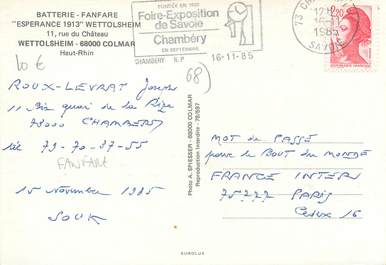 BATTERIE - FANFARE
"ESPERANCE 1913" WETTOLSHEIM
11, rue du Château
WETTOLSHEIM - 68000 COLMAR
Haut-Rhin
10 €
FONDÉE EN 1920
Foire-Exposition
de Savoie
Chambéry
EN SEPTEMBRE
CHAMBERY R.P
16-11-85
73 CHAMBERY
16-11
1985
SAVOIE
2,20
68)
ROUX-LEVRAT Joseph
11 Bis quai de la Rize
73000 CHAMBERY
Tél 79-70-37-55
FANFARE
15 Novembre 1985
SOUK
Photo A. SPIESSER - 68000 COLMAR
Reproduction Interdite - 78/887
MOT DE PASSÉ
pour Le Bout du MONDE
FRANCE INTER
75777 PARIS
Cedex 16
EUROLUX